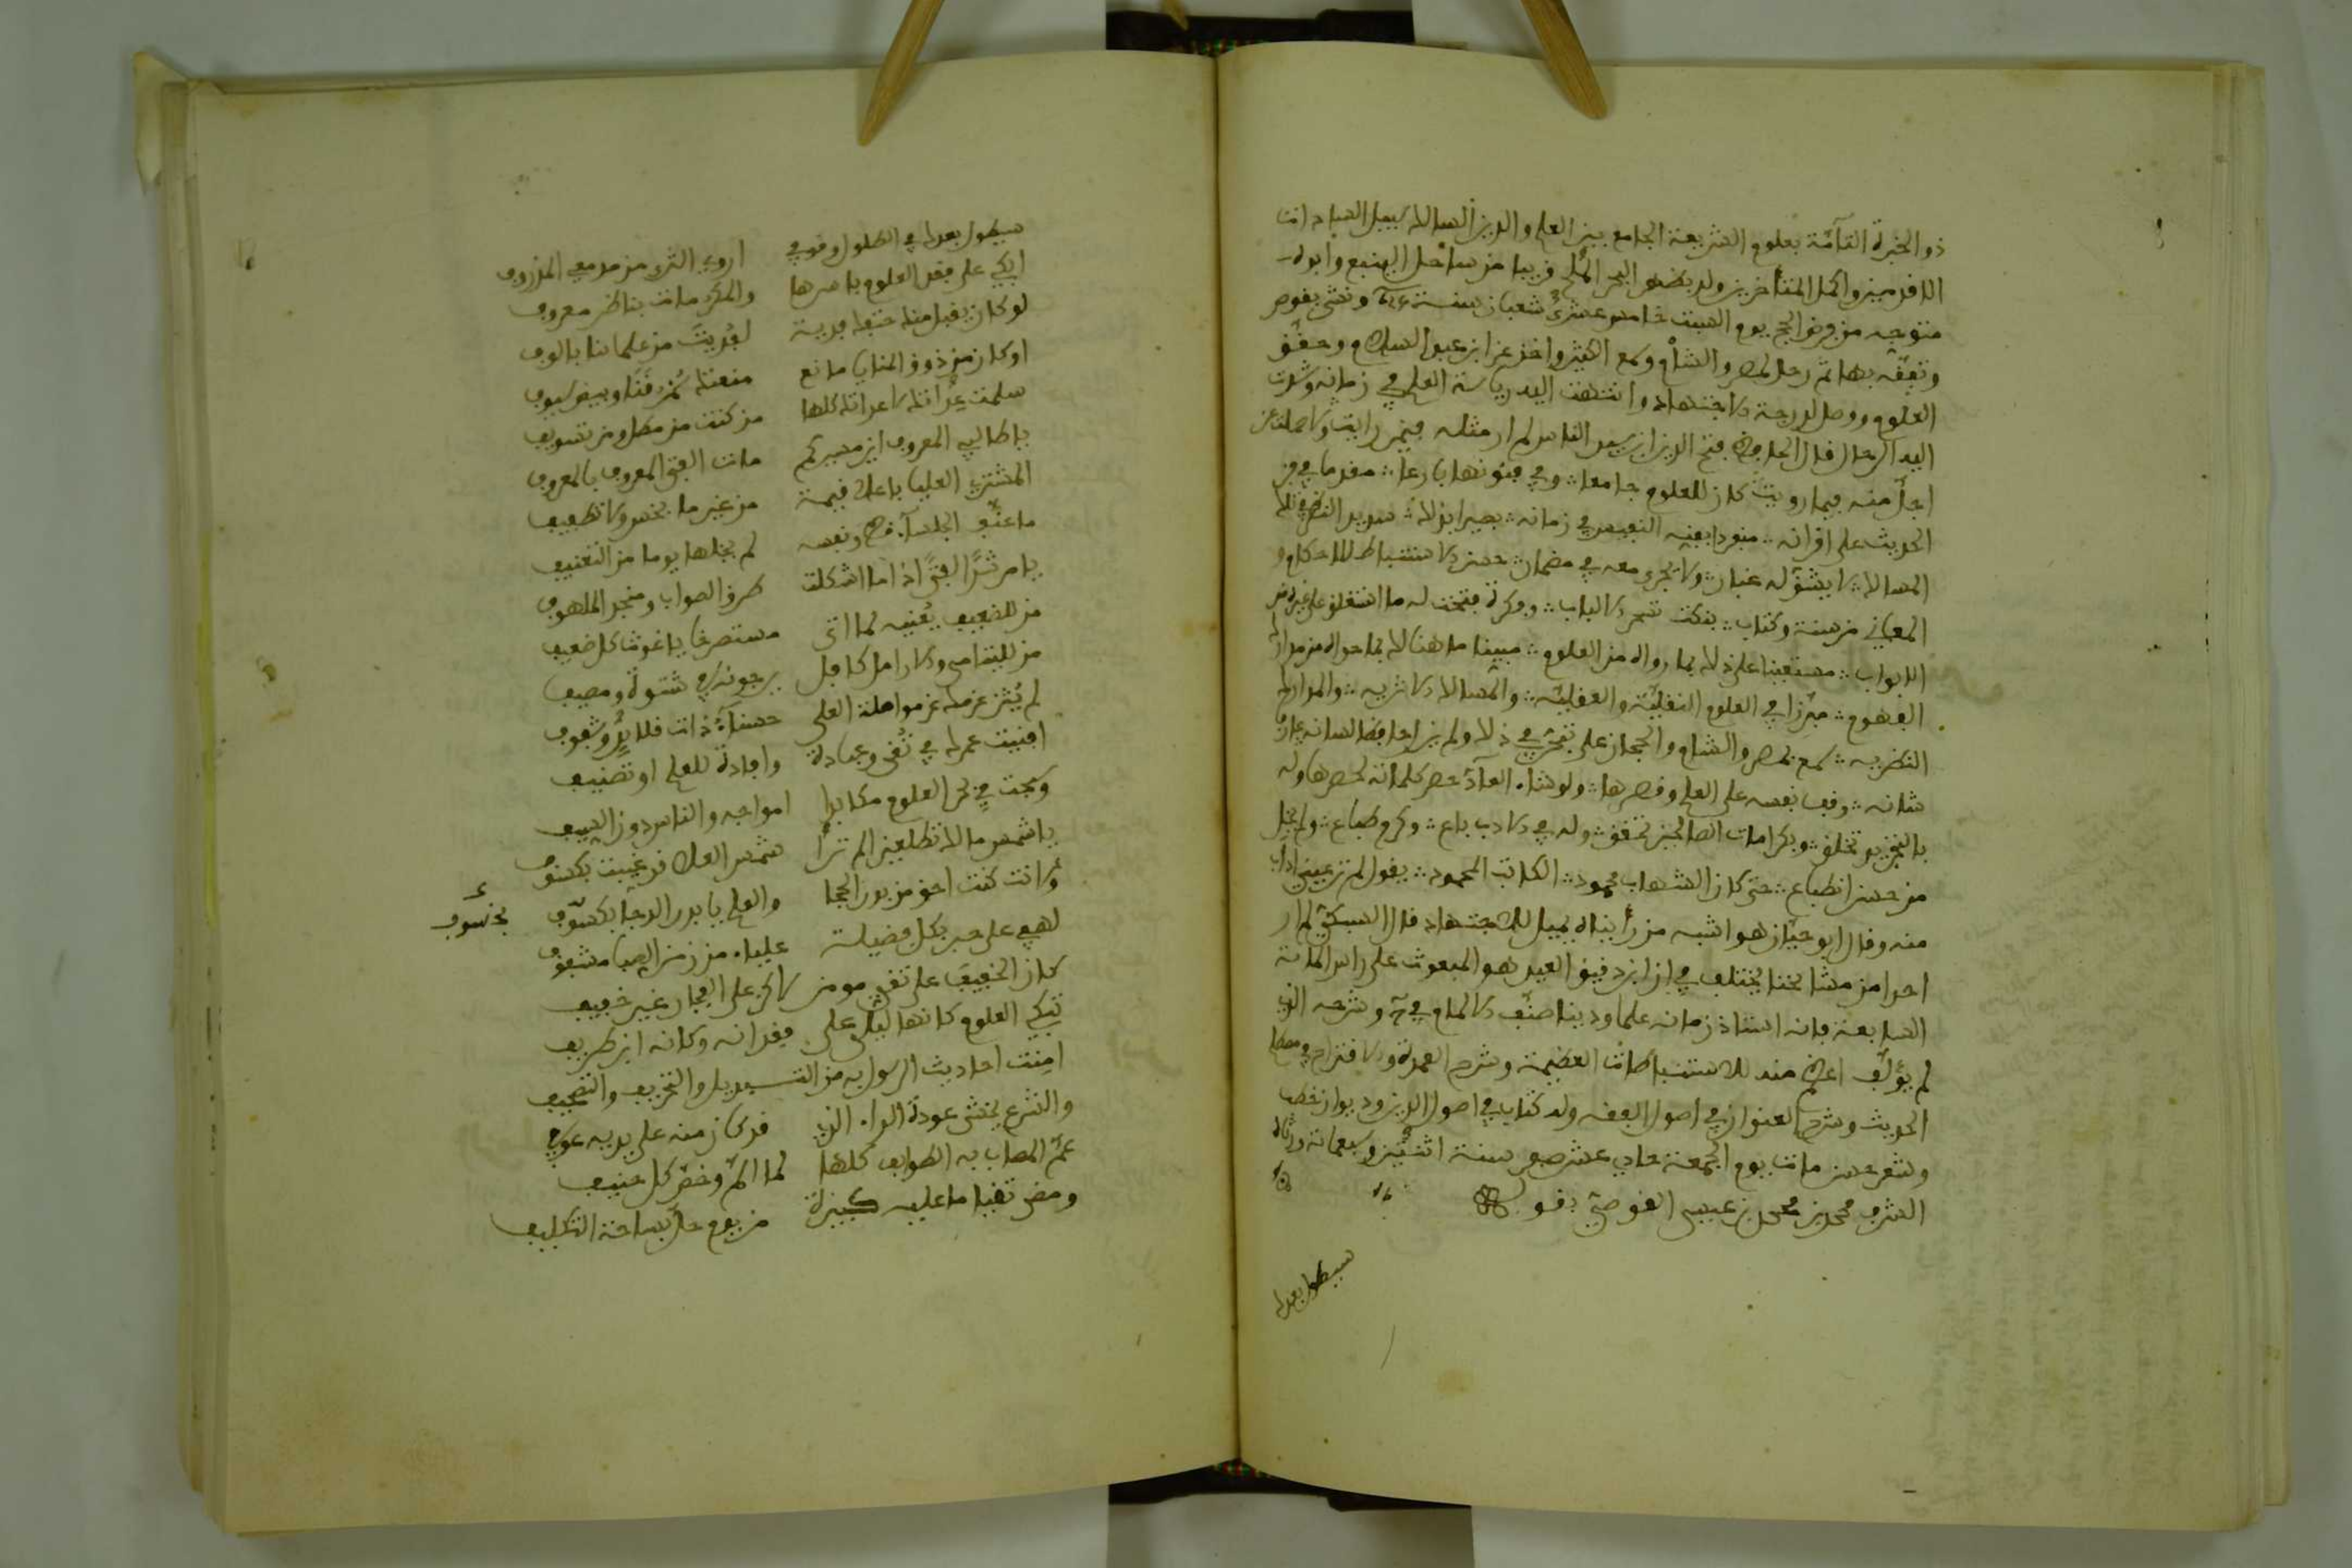 ذو الخبرة التآمّة بعلوم الشريعة الجامع بين العلم والدين السالك سبيل السادات
الاقدمين واكمل المتأخرين ولد بظهر البحر الملح قريبا من ساحل الينبع وابوه
متوجه من قوص للحج يوم السبت خامس عشري شعبان سنة ونشئ بقوص
وتفقّه بها ثم رحل لمصر والشام وسمع الكثير واخذ عن ابن عبد السلام وحقّق
العلوم ووصل لدرجة الاجتهاد وانتهت اليه رياسة العلم في زمانه وشدّت
اليه الرحال قال الحافظ فتح الدين ابن سيد الناس لم ار مثله فيمن رايت ولا حملت عن
اجلّ منه فيما رويت كان للعلوم جامعا وفي فنونها بارعا مقدما في فن
الحديث على اقرانه منفردا بفنه النفيس في زمانه بصيرا بذلك سديد النظر في تلك
المسالك لا يشق له غبار ولا يجرى معه في مضمار حسن الاستنباط للاحكام و
المعاني من سنة وكتاب بنكت تسحر الالباب وفكرة فتحت له ما استغلق على غيره من
الابواب مستعينا على ذلك بما رواه من العلوم مبينا ما هنالك بما حواه من مدارك
الفهوم مبرّزا في العلوم النقليّة والعقليّة والمسالك الاثريه والمدارك
النظريه سمع بمصر والشام والحجاز على تحرّ في ذلك ولم يزل حافظا للسانه
شانه وقف نفسه على العلم وقصرها ولو شاء العآدّ حصر كلماته لحصرها وله
بالتجريد تخلق وبكرامات الصالحين تحقق وله في الادب باع وكرم طباع ولم يخل
من حسن انطباع حتى كان الشهاب محمود الكاتب المحمود يقول لم تر عيني ادب
منه وقال ابو حيّان هو اشبه من رأيناه يميل للاجتهاد قال السبكيّ لم ار
احدا من مشايخنا يختلف في ان ابن دقيق العيد هو المبعوث على راس المائة
السابعة فانه استاذ زمانه علما ودينا صنّف الالمام في وشرحه الذي
لم يؤلّف اعظم منه للاستنباطات العظيمة وشرح العمدة والاقتراح في مصطلح
الحديث وشرح العنوان في اصول الفقه وله كتاب في اصول الدين وديوان خطب
وشعر حسن مات يوم الجمعة حادي عشر صفر سنة اثنتين وسبعمائة ورثاه
الشرف محمد بن محمد بن عيسى القوصيّ بقو له
سيطول بعدك
سيطول بعدك في الطلول وقوفي اروي الثرى من مدمعي المذروف
ابكي على فقد العلوم باسرها والمكرمات بناظر معروف
لو كان يقبل منك حتفك فدية لفُديت من علمائنا بالوف
او كان من ذوق المنايا مانع منعتك سُمر قَنًا وبيض سيوف
سلمت عِداتك لا عداتك كلها مذ كنت من مطل ومن تسويف
يا طالبي المعروف اين مسيركم مات الفتى المعروف بالمعروف
المشتري العليا باعلى قيمة من غير ما بخس ولا تطفيف
ما عنّف الجلسآء قط ونفسه لم يخلها يوما من التعنيف
يا مرشدًا الفتيًا اذا ما اشكلت طرق الصواب ومنجد الملهوف
من للضعيف يُعينه لما اتى مستصرخا يا غوث كل ضعيف
من لليتامى والارامل كافل يرجونه في شتوة ومصيف
لم يُثن عزمك عن مواصلة العلى حسنآءُ ذات قلايد وشنوف
افنيت عمرك في تُقى وعبادة وافادة للعلم او تصنيف
وسبحت في بحر العلوم مكابدا امواجه والناس دون السيف
يا شمس مالك تطلعين الم ترًا شمس العلى قد غُيبت بكسوف
ولانت كنت احق من بدر الحجا والعلم يا بدر الدجا بكسوف بخسوف
لهفي على حبر بكل فضيلة علياء من زمن الصبا مشغوف
كان الخفيف على تقيّ مومن لكن على الفجار غير خفيف
تبكي العلوم كانها ليلى على فقدانه وكانه ابن طريف
امنت احاديث الرسول به من التبديل والتحريف والتصحيف
والشرع يخشى عودة الداء الذي قد كان منه على يديه عوفي
عمّ المصاب به الطوايف كلها لما المّ وخصّ كل حنيف
ومضى تقيا ما عليه كبيرة من يوم حلّ بساحة التكليف